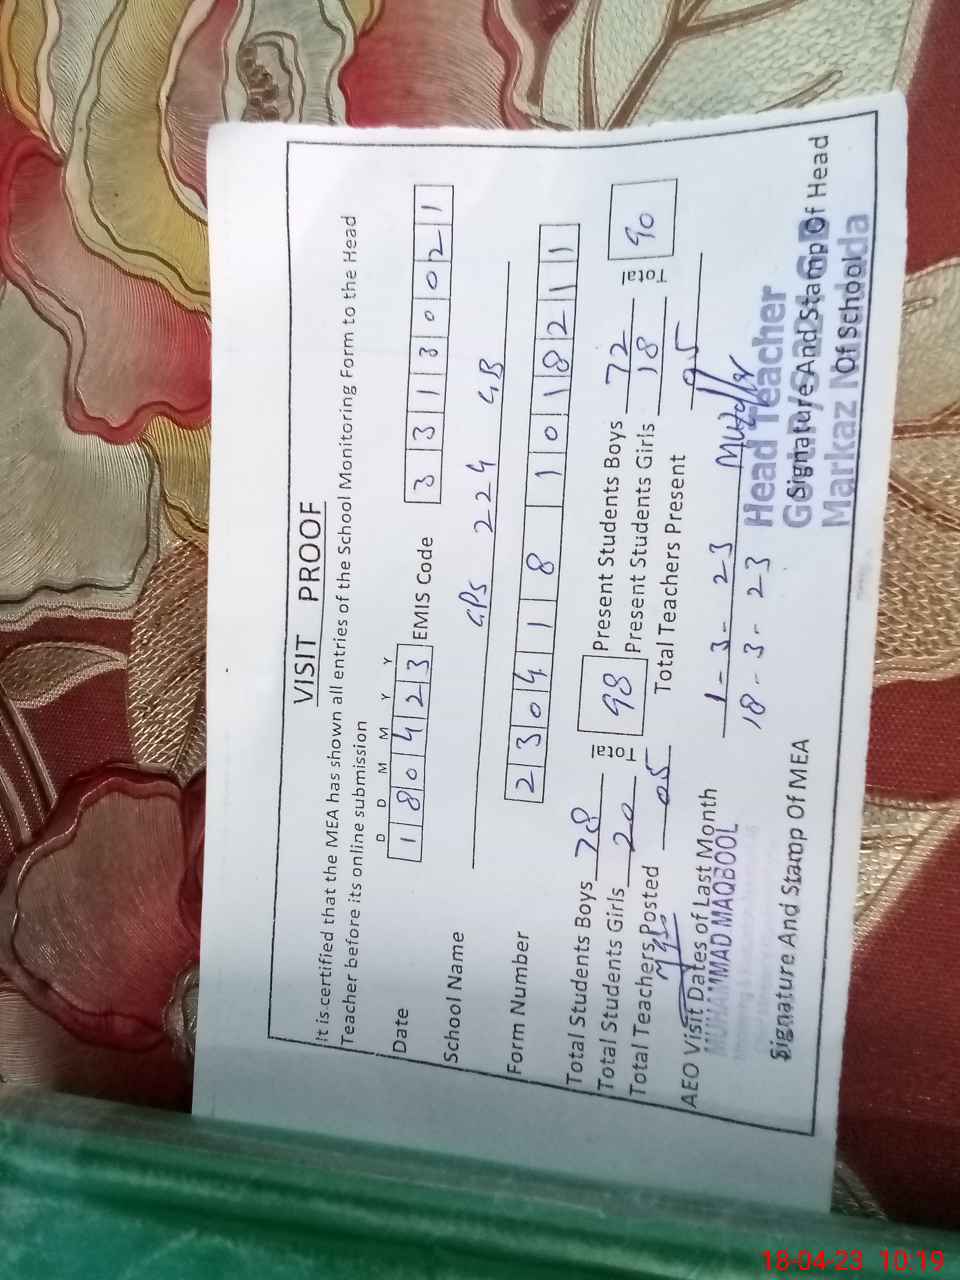 VISIT PROOF
It is certified that the MEA has shown all entries of the School Monitoring Form to the Head
Teacher before its online submission
D D M M Y Y
Date 1 8 0 4 2 3 EMIS Code 3 3 1 3 0 0 2 1
School Name GPS 224 GB
Form Number 2 3 0 4 1 8 1 0 1 8 2 1 1
Total Students Boys 78 Total 98 Present Students Boys 72 Total 90
Total Students Girls 20 Present Students Girls 18
Total Teachers Posted 05 Total Teachers Present 05
AEO Visit Dates of Last Month 1-3-23
18-3-23
MUHAMMAD MAQBOOL
Head Teacher
Signature And Stamp Of MEA
Signature And Stamp Of Head
Markaz
Of School
18-04-23 10:19